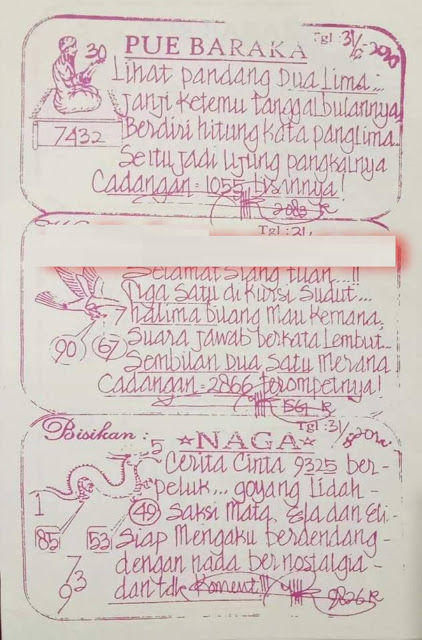 30
7432
PUE BARAKA Tgl: 31/5-2020
Lihat pandang Dua Lima...
Janji Ketemu tanggal bulannya
Berdiri hitung Kata panglima..
Seitu jadi ujung pangkalnya
Cadangan = 1055 Lisannya!
2083
Tgl: 31/
Selamat Siang tuan...!!
Tiga Satu di Kursi Sudut...
halima buang mau Kemana.
Suara jawab berkata Lembut...
Sembilan Dua Satu Merana
Cadangan = 2866 terompetnya!
90 67
Bisikan: NAGA
Tgl: 31/
5
1
49
85 53
7
3
9
Cerita Cinta 9325 ber-
peluk... goyang Lidah -
Saksi Mata. Ela dan Eli -
Siap Mengaku berdendang -
dengan nada bernostalgia -
dan tdk Koment!!!
9826